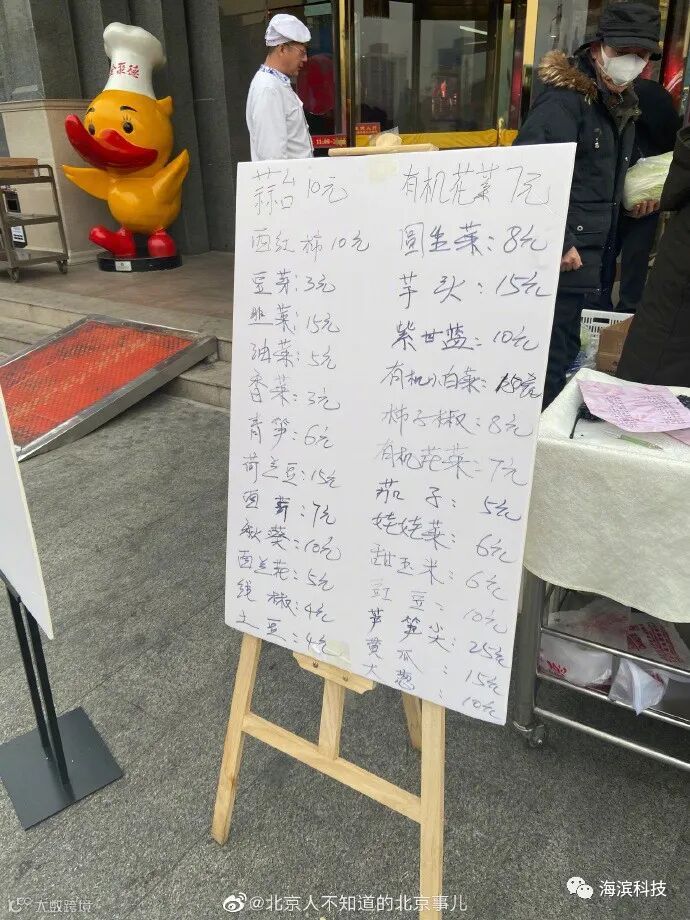 全聚德
蒜台10元
西红柿10元
豆芽：3元
韭菜：15元
油菜：5元
香菜：3元
青笋：6元
荷兰豆：15元
茴茅：7元
秋葵：10元
西兰花：5元
线椒：4元
土豆：4元
有机花菜7元
圆生菜：8元
芋头：15元
紫甘蓝：10元
有机小白菜：
柿子椒：8元
有机花菜：7元
茄子：5元
娃娃菜：6元
甜玉米：6元
豇豆：10元
芦笋尖：25元
黄瓜：15元
大葱：10元
大数跨境
@北京人不知道的北京事儿
海滨科技